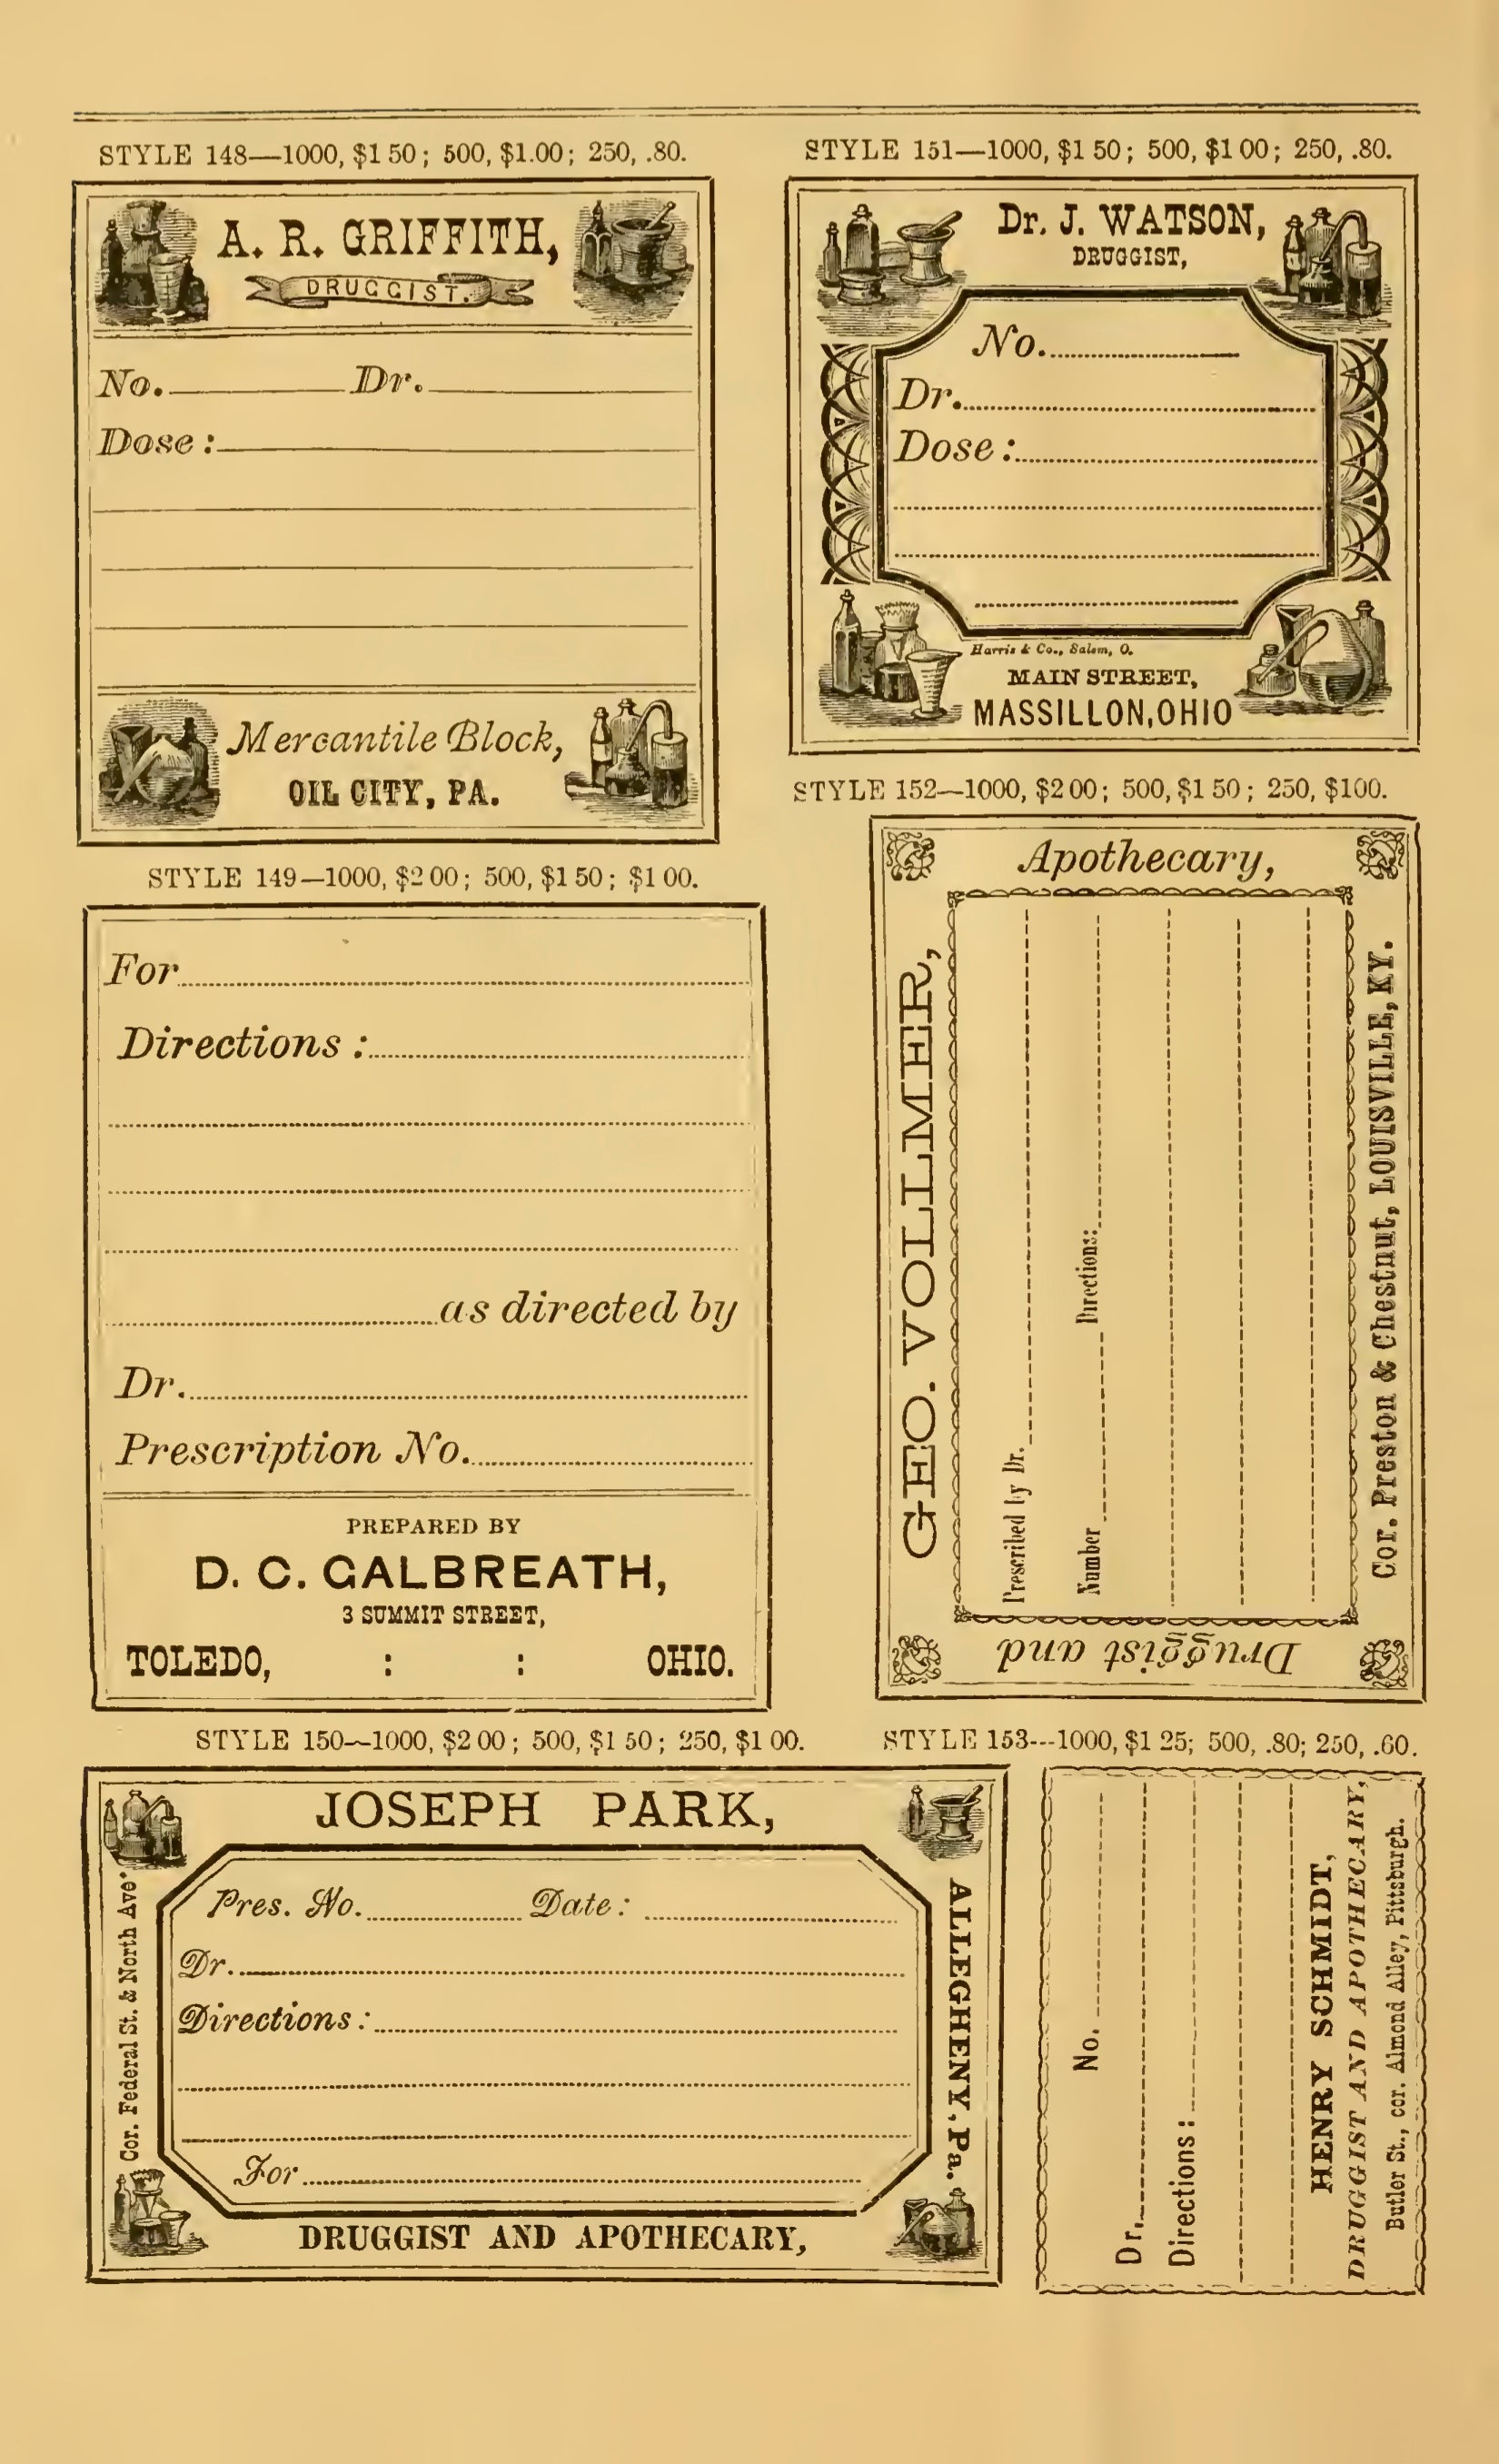 STYLE 148—1000, $1 50; 500, $1.00; 250, .80.
A. R. GRIFFITH,
DRUGGIST.
No. Dr.
Dose:
Mercantile Block,
OIL CITY, PA.
STYLE 149—1000, $2 00; 500, $1 50; $1 00.
For
Directions:
as directed by
Dr.
Prescription No.
PREPARED BY
D. C. GALBREATH,
3 SUMMIT STREET,
TOLEDO, : : OHIO.
STYLE 150—1000, $2 00; 500, $1 50; 250, $1 00.
JOSEPH PARK,
Cor. Federal St. & North Ave.
Pres. No. Date:
Dr.
Directions:
For
ALLEGHENY, Pa.
DRUGGIST AND APOTHECARY,
STYLE 151—1000, $1 50; 500, $1 00; 250, .80.
Dr. J. WATSON,
DRUGGIST,
No.
Dr.
Dose:
Harris & Co., Salem, O.
MAIN STREET,
MASSILLON, OHIO
STYLE 152—1000, $2 00; 500, $1 50; 250, $100.
GEO. VOLLMER,
Druggist and
Apothecary,
Prescribed by Dr.
Number Directions:
Cor. Preston & Chestnut, LOUISVILLE, KY.
STYLE 153---1000, $1 25; 500, .80; 250, .60.
No.
Dr.
Directions:
HENRY SCHMIDT,
DRUGGIST AND APOTHECARY,
Butler St., cor. Almond Alley, Pittsburgh.